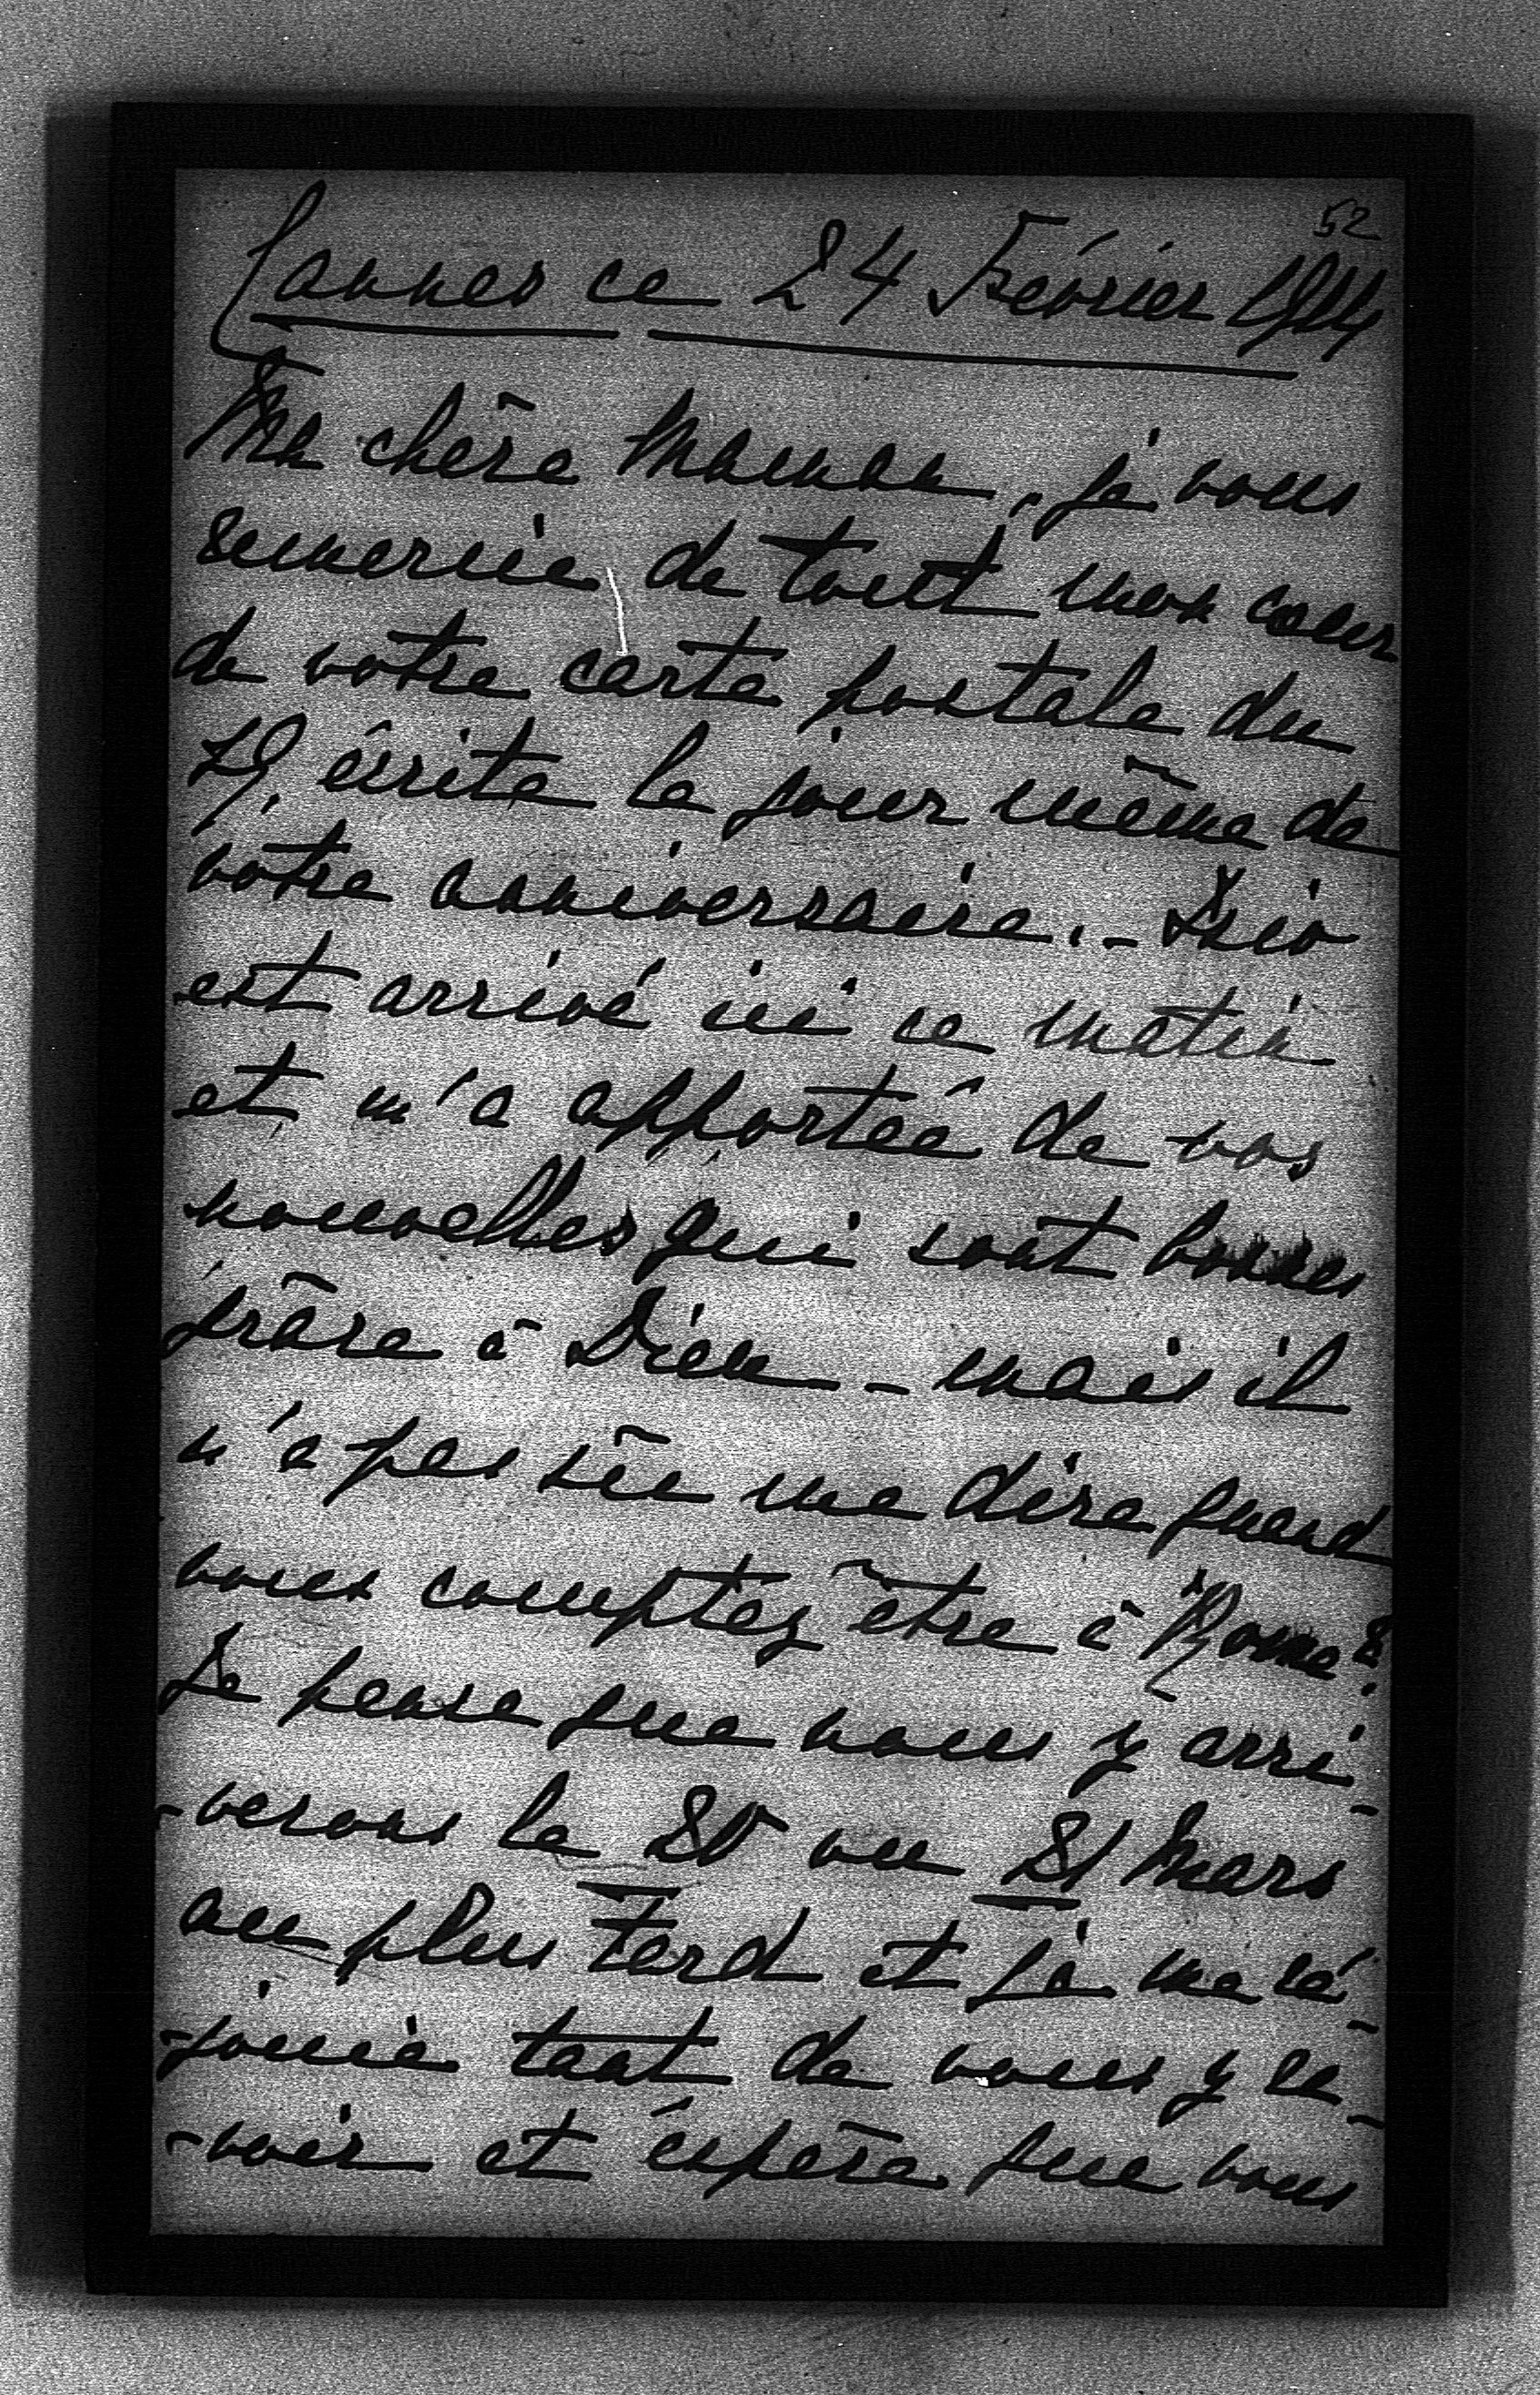 52
Cannes ce 24 Février 1914
Ma chère Maman, je vous
remercie de tout mon coeur
de votre carte postale du
19, écrite le jour même de
votre anniversaire. -
est arrivé ici ce matin
et m'a apporté de vos
nouvelles qui sont bonnes
grâce à Dieu - mais il
n'a pas sû me dire quand
vous comptez être à Rome?
Je pense que nous y arri-
-verons le 20 ou 21 Mars
au plus tard et je me ré-
-jouie tant de vous y re-
-voir et éspère que vous